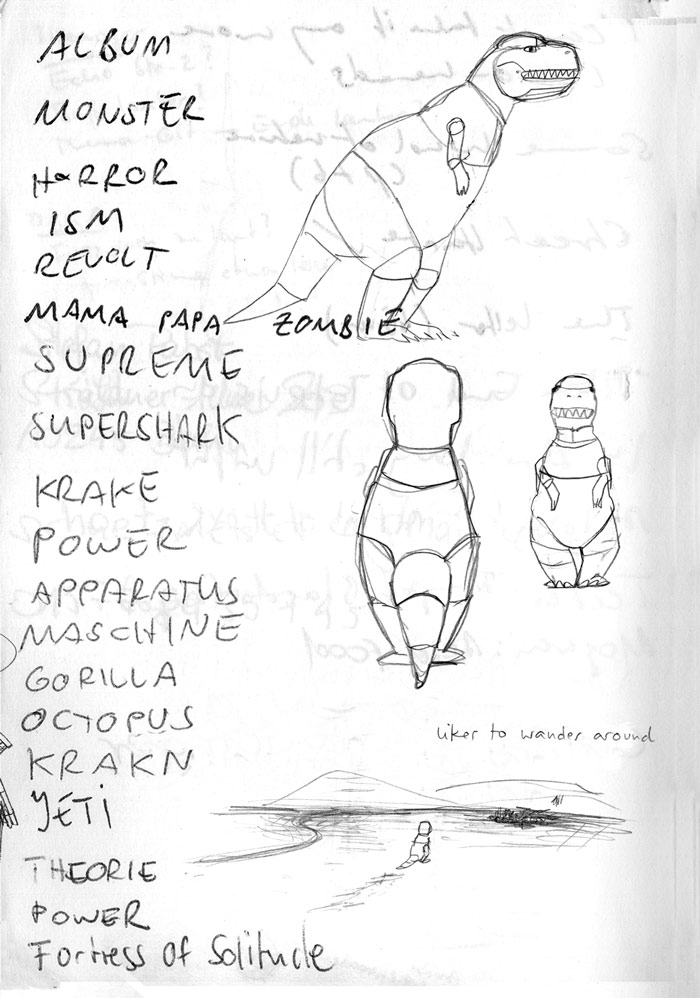 ALBUM
MONSTER
HORROR
ISM
REVOLT
MAMA PAPA ZOMBIE
SUPREME
SUPERSHARK
KRAKE
POWER
APPARATUS
MASCHINE
GORILLA
OCTOPUS
KRAKN
YETI
THEORIE
POWER
Fortress of Solitude
liker to wander around